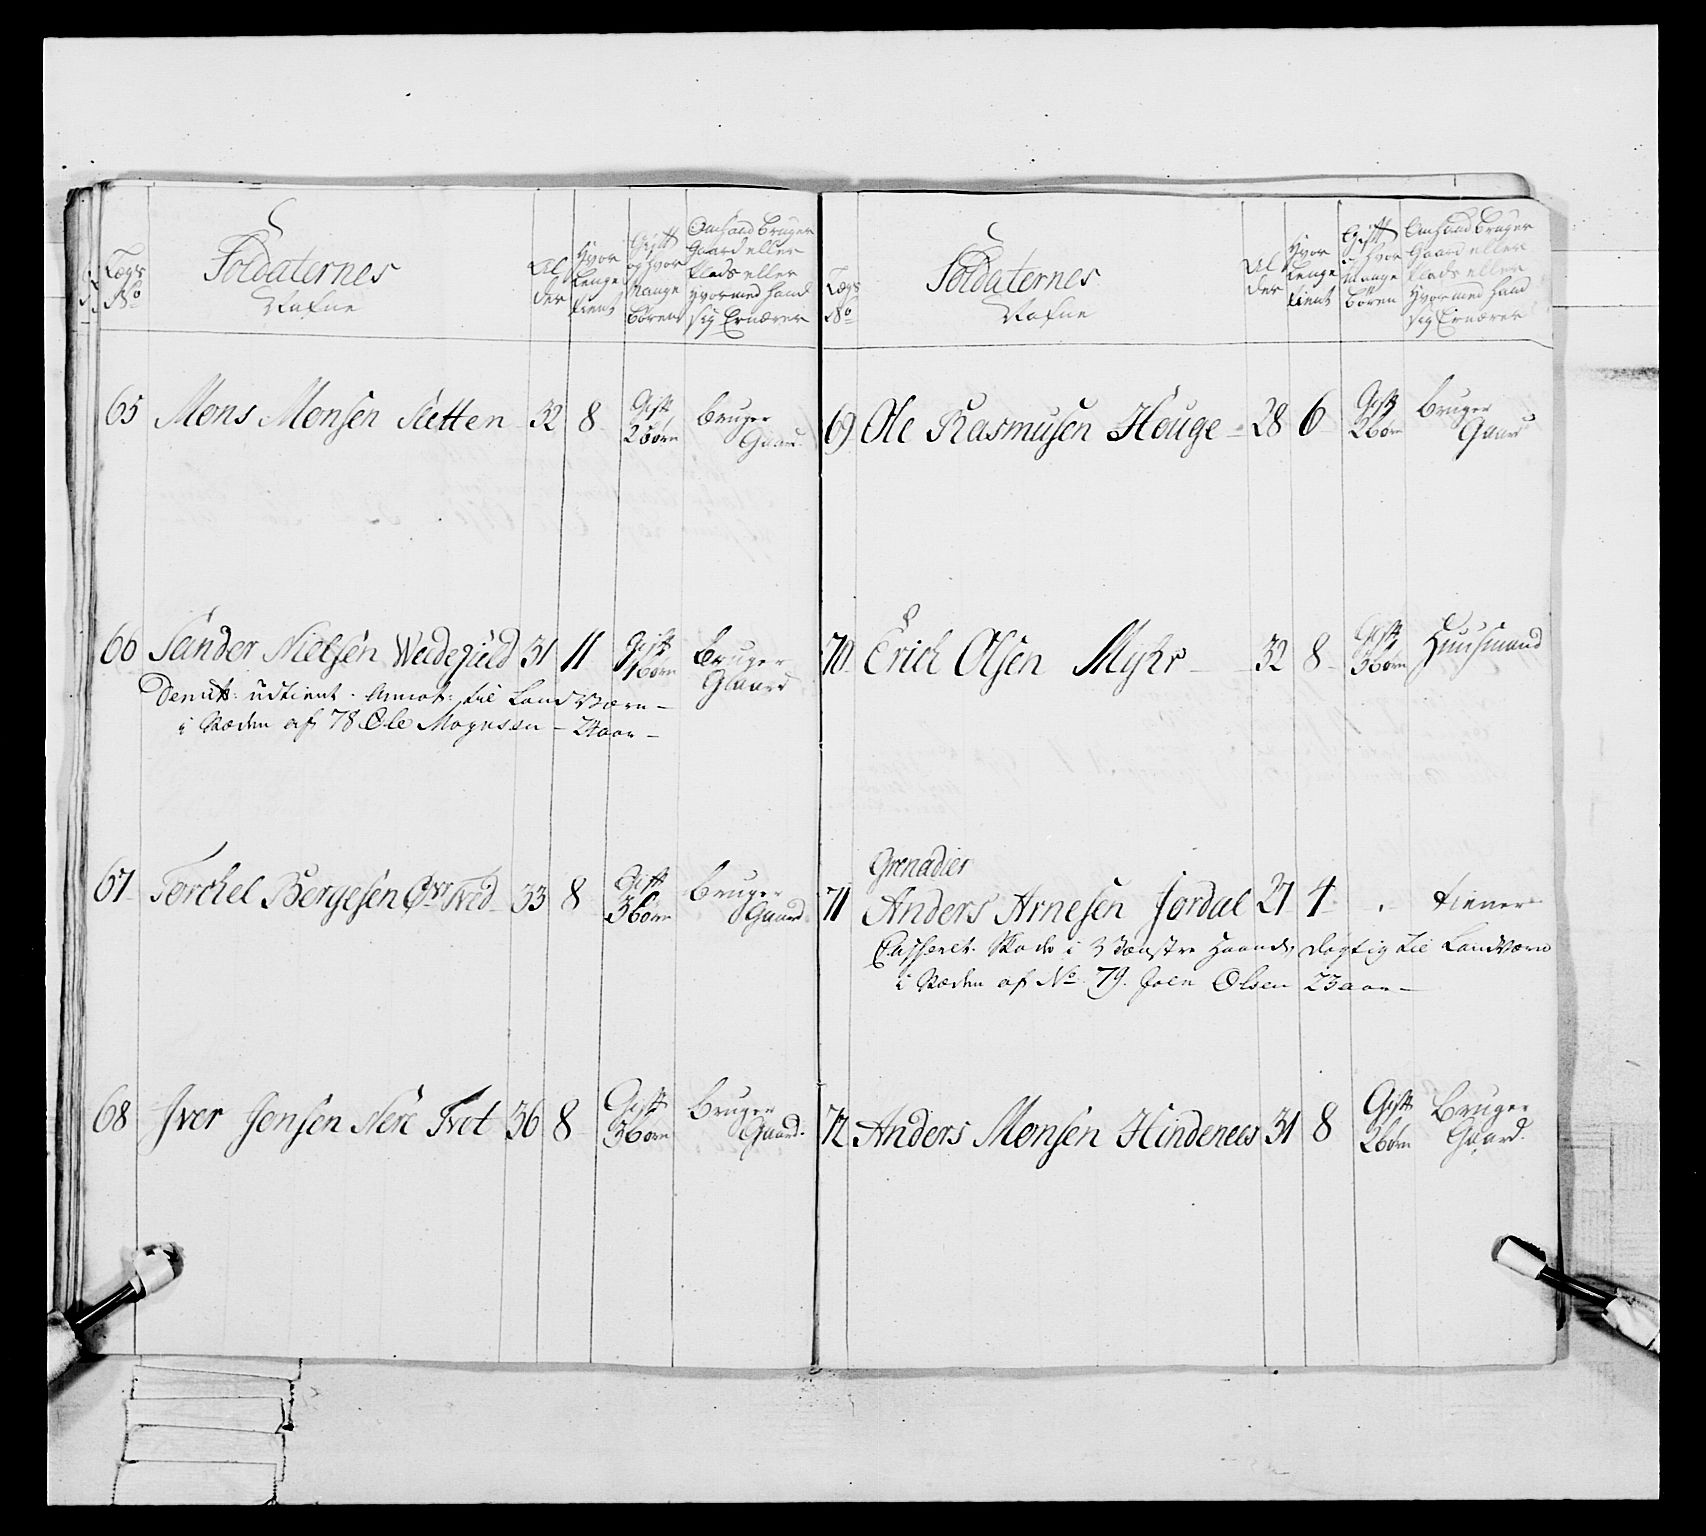 Lægs No
Soldaternes Nafne
Al der
Hvor Lenge tient
Gift og Hvor Mange Børen
Om hand bruger Gaard eller Plads eller Hvormed hand sig Ernærer
65 Mons Monsen Sletten 32 8 Gift 2 børn bruger Gaard
66 Sander Nielsen 31 11 Gift børn Bruger Gaard
udtient. Annot: til Land Værn
i Stæden af 78 Ole Mognsen 24 aar
67 Torchel Bergesen Øvr Tved 33 8 Gift 3 børn bruger Gaard
68 Iver Jensen Nere Tvet 36 8 Gift 3 børn Bruger Gaard.
Lægs No
Soldaternes Nafne
Al der
Hvor Lenge tient
Gift Hvor Mange Børen
Om hand Bruger Gaard eller Plads eller Hvormed hand sig Ernærer
69 Ole Rasmusen Houge 28 6 Gift børn bruger Gaard
70 Erich Olsen Myhr 32 8 Gift 3 børn Huusmand
Grenadier
71 Anders Arnesen Jordal 27 4 tiener
Casseret Skade i Venstre Haand, dogtig til Landværn
i Stæden af No 79. Joen Olsen 23 aar
72 Anders Monsen Hindenees 31 8 Gift 2 børn Bruger Gaard.